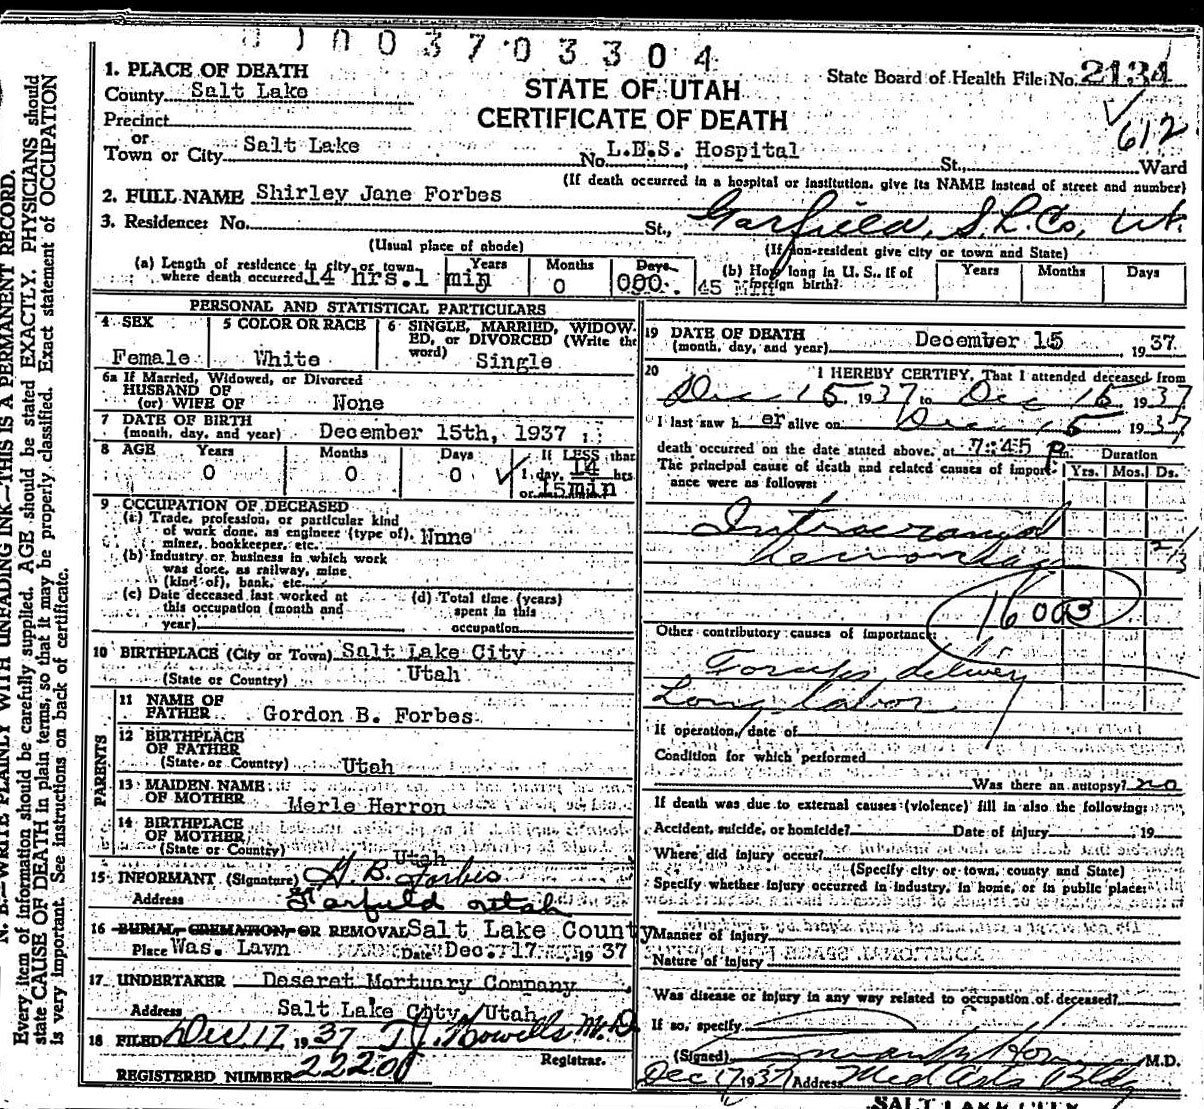 003703304
1. PLACE OF DEATH
STATE OF UTAH
CERTIFICATE OF DEATH
State Board of Health File No. 2134
County Salt Lake
Precinct
612
or
Town or City Salt Lake No. L.D.S. Hospital St., Ward
(If death occurred in a hospital or institution, give its NAME instead of street and number)
2. FULL NAME Shirley Jane Forbes
3. Residence: No. St., Garfield, S.L.Co, Ut.
(Usual place of abode) (If non-resident give city or town and State)
(a) Length of residence in city or town where death occurred 14 hrs. 1 min Years Months 0 Days 000. 45 Min
(b) How long in U. S., if of foreign birth? Years Months Days
PERSONAL AND STATISTICAL PARTICULARS
4 SEX
Female
5 COLOR OR RACE
White
6 SINGLE, MARRIED, WIDOWED, or DIVORCED (Write the word)
Single
6a If Married, Widowed, or Divorced
HUSBAND OF
(or) WIFE OF None
7 DATE OF BIRTH
(month, day, and year) December 15th, 1937
8 AGE Years 0 Months 0 Days 0 If LESS than 1 day, 14 hrs. or 15min
9 OCCUPATION OF DECEASED
(a) Trade, profession, or particular kind
of work done, as engineer (type of), None
miner, bookkeeper, etc.
(b) Industry or business in which work
was done, as railway, mine
(kind of), bank, etc.
(c) Date deceased last worked at
this occupation (month and
year)
(d) Total time (years)
spent in this
occupation
10 BIRTHPLACE (City or Town) Salt Lake City
(State or Country) Utah
PARENTS
11 NAME OF
FATHER Gordon B. Forbes
12 BIRTHPLACE
OF FATHER
(State or Country) Utah
13 MAIDEN NAME
OF MOTHER Merle Herron
14 BIRTHPLACE
OF MOTHER
(State or Country) Utah
15 INFORMANT (Signature) G. B. Forbes
Address Garfield Utah
16 BURIAL, CREMATION, OR REMOVAL Salt Lake County
Place Was. Lawn Date Dec. 17 1937
17 UNDERTAKER Deseret Mortuary Company
Address Salt Lake City, Utah
18 FILED Dec 17 1937 T.J. Howells M.D.
Registrar.
REGISTERED NUMBER 2220
19 DATE OF DEATH
(month, day, and year) December 15, 1937
20 I HEREBY CERTIFY, That I attended deceased from
Dec 15, 1937 to Dec 15, 1937
I last saw h er alive on Dec 15 1937
death occurred on the date stated above, at 7:45 P m. Duration
The principal cause of death and related causes of importance were as follows: Yrs. Mos. Ds.
Intracranial
hemorrhage 2/3
160a3
Other contributory causes of importance:
Forceps delivery
Long labor
If operation, date of
Condition for which performed
Was there an autopsy? no
If death was due to external causes (violence) fill in also the following:
Accident, suicide, or homicide? Date of injury 19
Where did injury occur?
(Specify city or town, county and State)
Specify whether injury occurred in industry, in home, or in public place:
Manner of injury
Nature of injury
Was disease or injury in any way related to occupation of deceased?
If so, specify
(Signed) M.D.
Dec 17 1937 Address Med Arts Bldg
SALT LAKE CITY
N. B.—WRITE PLAINLY WITH UNFADING INK—THIS IS A PERMANENT RECORD.
Every item of information should be carefully supplied. AGE should be stated EXACTLY. PHYSICIANS should
state CAUSE OF DEATH in plain terms, so that it may be properly classified. Exact statement of OCCUPATION
is very important. See instructions on back of certificate.